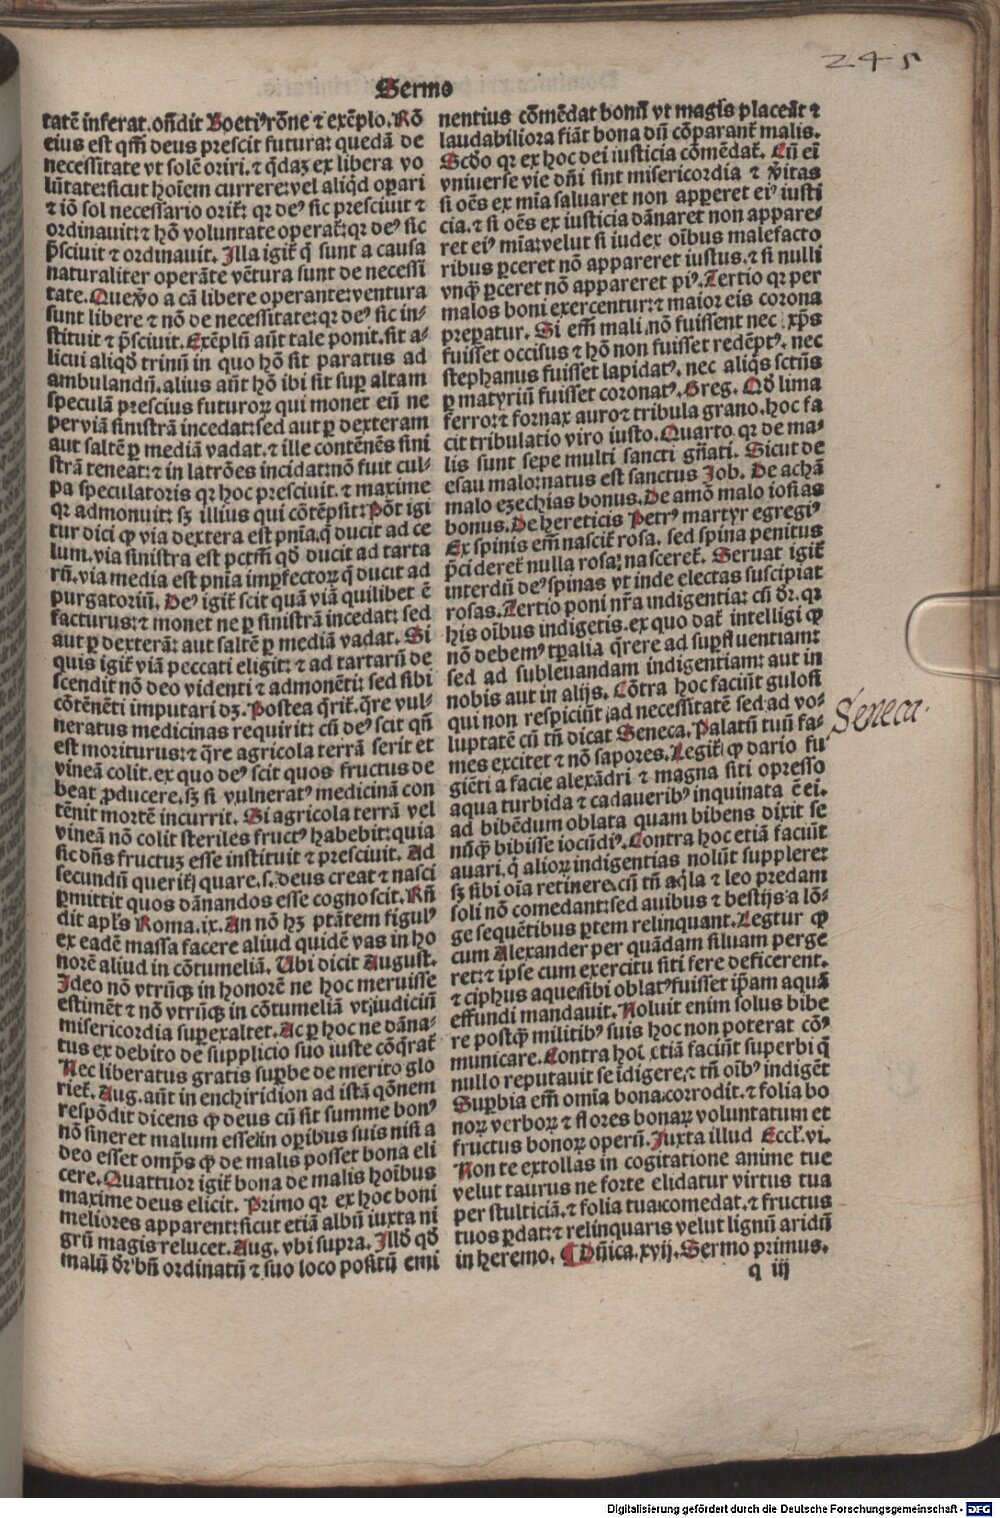 245
Sermo
tatē inferat. oñdit Boeti⁹ rōne ⁊ exēplo. Rō
eius est qm̄ deus prescit futura: quedā de
necessitate vt solē oriri. ⁊ q̄daꝫ ex libera vo
lūtate: sicut hoīem currere: vel aliqd oꝑari
⁊ iō sol necessario orit̄: qꝛ de⁹ sic presciuit ⁊
ordinauit: ⁊ hō voluntate operat̄: qꝛ de⁹ sic
p̄sciuit ⁊ ordinauit. Illa igit̄ q̄ sunt a causa
naturaliter operāte vētura sunt de necessi
tate. Que v̄o a cā libere operante: ventura
sunt libere ⁊ nō de necessitate: qꝛ de⁹ sic in-
stituit ⁊ p̄sciuit. Exēplū aūt tale ponit. sit a-
licui aliqđ triuū in quo hō sit paratus ad
ambulandū. alius aūt hō ibi sit suꝑ altam
speculā prescius futuroꝝ qui monet eū ne
per viā sinistrā incedat: sed aut ꝑ dexteram
aut saltē ꝑ mediā vadat. ⁊ ille contēnēs sini
strā teneat: ⁊ in latrōes incidat: nō fuit cul-
pa speculatoris qꝛ hoc presciuit. ⁊ maxime
qꝛ admonuit: sꝫ illius qui cōtēpsit: Pōt igi
tur dici ꝙ via dextera est pnīa. q̄ ducit ad ce
lum. via sinistra est pctm̄ qđ ducit ad tarta
rū. via media est pnīa imꝑfectoꝝ q̄ ducit ad
purgatoriū. De⁹ igit̄ scit quā viā quilibet ē
facturus: ⁊ monet ne ꝑ sinistrā incedat: sed
aut ꝑ dexterā: aut saltē ꝑ mediā vadat. Si
quis igit̄ viā peccati eligit: ⁊ ad tartarū de
scendit nō deo videnti ⁊ admonēti: sed sibi
cōtēnēti imputari dꝫ. Postea q̄rit̄. q̄re vul-
neratus medicinas requirit: cū de⁹ scit qñ
est moriturus: ⁊ q̄re agricola terrā serit et
vineā colit. ex quo de⁹ scit quos fructus de
beat ꝓducere. sꝫ si vulnerat⁹ medicinā con
tēnit mortē incurrit. Si agricola terrā vel
vineā nō colit steriles fruct⁹ habebit: quia
sic dñs fructuꝫ esse instituit ⁊ presciuit. Ad
secundū querit̄ quare. s. deus creat ⁊ nasci
ꝑmittit quos dānandos esse cognoscit. Rñ
dit apl̄s Roma. ix. An nō hꝫ ptātem figul⁹
ex eadē massa facere aliud quidē vas in ho
norē aliud in cōtumeliā. Ubi dicit August.
Ideo nō vtrūqꝫ in honorē ne hoc meruisse
estimēt ⁊ nō vtrūqꝫ in cōtumeliā vt judiciū
misericordia suꝑexaltet. Ac ꝑ hoc ne dāna-
tus ex debito de supplicio suo iuste cōq̄rat̄
Nec liberatus gratis suꝑbe de merito glo
riet̄. Aug. aūt in enchiridion ad istā qōnem
respōdit dicens ꝙ deus cū sit summe bon⁹
nō sineret malum esse in oꝑibus suis nisi a
deo esset omp̄s ꝙ de malis posset bona eli
cere. Quattuor igit̄ bona de malis hoībus
maxime deus elicit. Primo qꝛ ex hoc boni
meliores apparent: sicut etiā albū iuxta ni
grū magis relucet. Aug. vbi supra. Illđ qđ
malū dr̄ bñ ordinatū ⁊ suo loco positū emi
nentius cōmēdat bonū vt magis placeāt ⁊
laudabiliora fiāt bona dū cōparant̄ malis.
Scđo qꝛ ex hoc dei iusticia cōmēdat̄. Cū eī
vniuerse vie dñi sint misericordia ⁊ v̄itas
si oēs ex mīa saluaret non apꝑeret ei⁹ iusti
cia. ⁊ si oēs ex iusticia dānaret non appare-
ret ei⁹ mīa: velut si iudex oībus malefacto
ribus ꝑceret nō appareret iustus. ⁊ si nulli
vnqꝫ ꝑceret nō appareret pi⁹. Tertio qꝛ per
malos boni exercentur: ⁊ maior eis corona
preꝑatur. Si em̄ mali nō fuissent nec xp̄s
fuisset occisus ⁊ hō non fuisset redēpt⁹. nec
stephanus fuisset lapidat⁹. nec aliqs sctūs
ꝑ matyriū fuisset coronat⁹. Greg. Qđ lima
ferro: ⁊ fornax auro ⁊ tribula grano. hoc fa
cit tribulatio viro iusto. Quarto qꝛ de ma-
lis sunt sepe multi sancti gñati. Sicut de
esau malo: natus est sanctus Job. De achā
malo ezechias bonus. De amō malo iosias
bonus. De hereticis Petr⁹ martyr egregi⁹
Ex spinis em̄ nascit̄ rosa. sed spina penitus
p̄cideret̄ nulla rosa: nasceret̄. Seruat igit̄
interdū de⁹ spinas vt inde electas suscipiat
rosas. Tertio poni nr̄a indigentia: cū dr̄. qꝛ
his oībus indigetis. ex quo dat̄ intelligi ꝙ
nō debem⁹ tꝑalia q̄rere ad suꝑfluentiam:
sed ad subleuandam indigentiam: aut in
nobis aut in alijs. Cōtra hoc faciūt gulosi
qui non respiciūt ad necessitatē sed ad vo-
luptatē cū tñ dicat Seneca. Palatū tuū fa-
mes excitet ⁊ nō sapores. Legit̄ ꝙ dario fu
giēti a facie alexādri ⁊ magna siti opresso
aqua turbida ⁊ cadauerib⁹ inquinata ē ei.
ad bibēdum oblata quam bibens dixit se
nūqꝫ bibisse iocūdi⁹. Contra hoc etiā faciūt
auari. q̄ alioꝝ indigentias nolūt supplere:
sꝫ sibi oīa retinere. cū tñ aq̄la ⁊ leo predam
soli nō comedant: sed auibus ⁊ bestijs a lō-
ge sequētibus ꝑtem relinquant. Legtur ꝙ
cum Alexander per quādam siluam perge
ret: ⁊ ipse cum exercitu siti fere deficerent.
⁊ ciphus aque sibi oblat⁹ fuisset ip̄am aquā
effundi mandauit. Noluit enim solus bibe
re postqꝫ militib⁹ suis hoc non poterat cō-
municare. Contra hoi etiā faciūt superbi q̄
nullo reputauit se īdigere. ⁊ tñ oīb⁹ indigēt
Suꝑbia em̄ omīa bona corrodit. ⁊ folia bo
noꝝ verboꝝ ⁊ flores bonaꝝ voluntatum et
fructus bonoꝝ operū. Iuxta illud Eccl̄. vi.
Non te extollas in cogitatione anime tue
velut taurus ne forte elidatur virtus tua
per stulticiā. ⁊ folia tua comedat. ⁊ fructus
tuos ꝑdat: ⁊ relinquaris velut lignū aridū
in heremo. ¶ Dñica. xvij. Sermo primus.
q iij
Seneca.
Digitalisierung gefördert durch die Deutsche Forschungsgemeinschaft - DFG